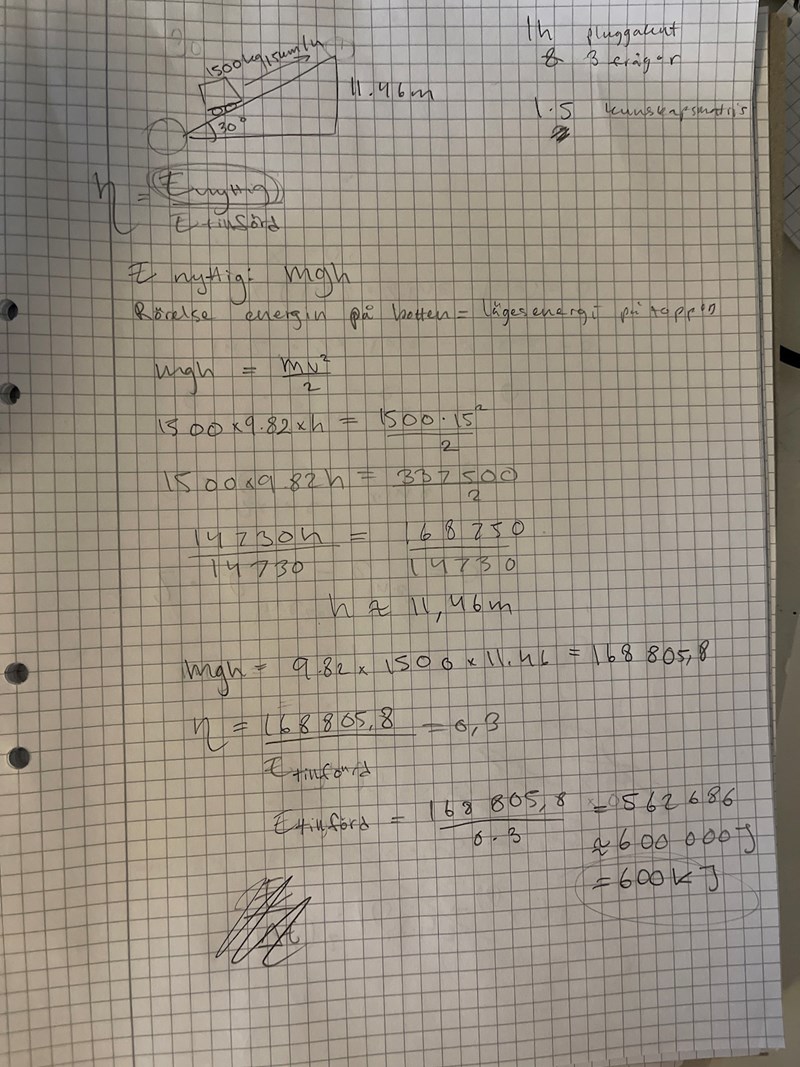 1h pluggakut
& 3 frågor
1.5 kunskapsmatris
1500kg 15m/s
11.46m
30°
η = Enyttig
Etillförd
E nyttig: mgh
Rörelse energin på botten = lägesenergi på toppen
mgh = mv²
2
1500×9.82×h = 1500·15²
2
1500×9.82h = 337500
2
14730h = 168750
14730 14730
h ≈ 11,46m
mgh = 9.82 × 1500 × 11.46 = 168 805,8
η = 168 805,8 = 0,3
Etillförd
Etillförd = 168 805,8 = 562 686
0.3 ≈ 600 000J
= 600kJ